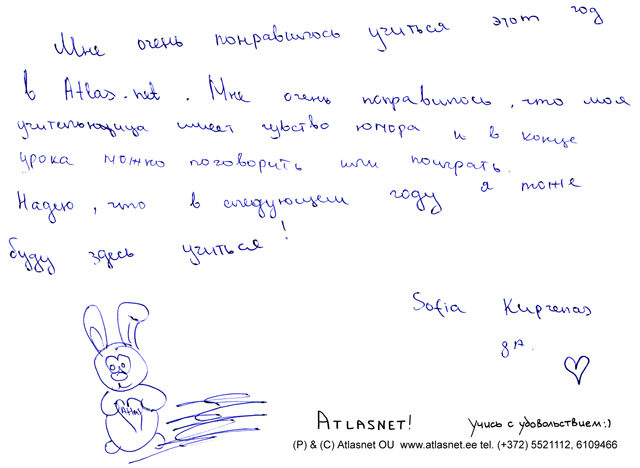 Мне очень понравилось учиться этот год
в Atlas.net. Мне очень понравилось, что моя
учительница имеет чувство юмора и в конце
урока можно поговорить или поиграть.
Надею, что в следующем году я тоже
буду здесь учиться!
Sofia
ATLASNET!
Учись с удовольствием:)
(P) & (C) Atlasnet OU www.atlasnet.ee tel. (+372) 5521112, 6109466